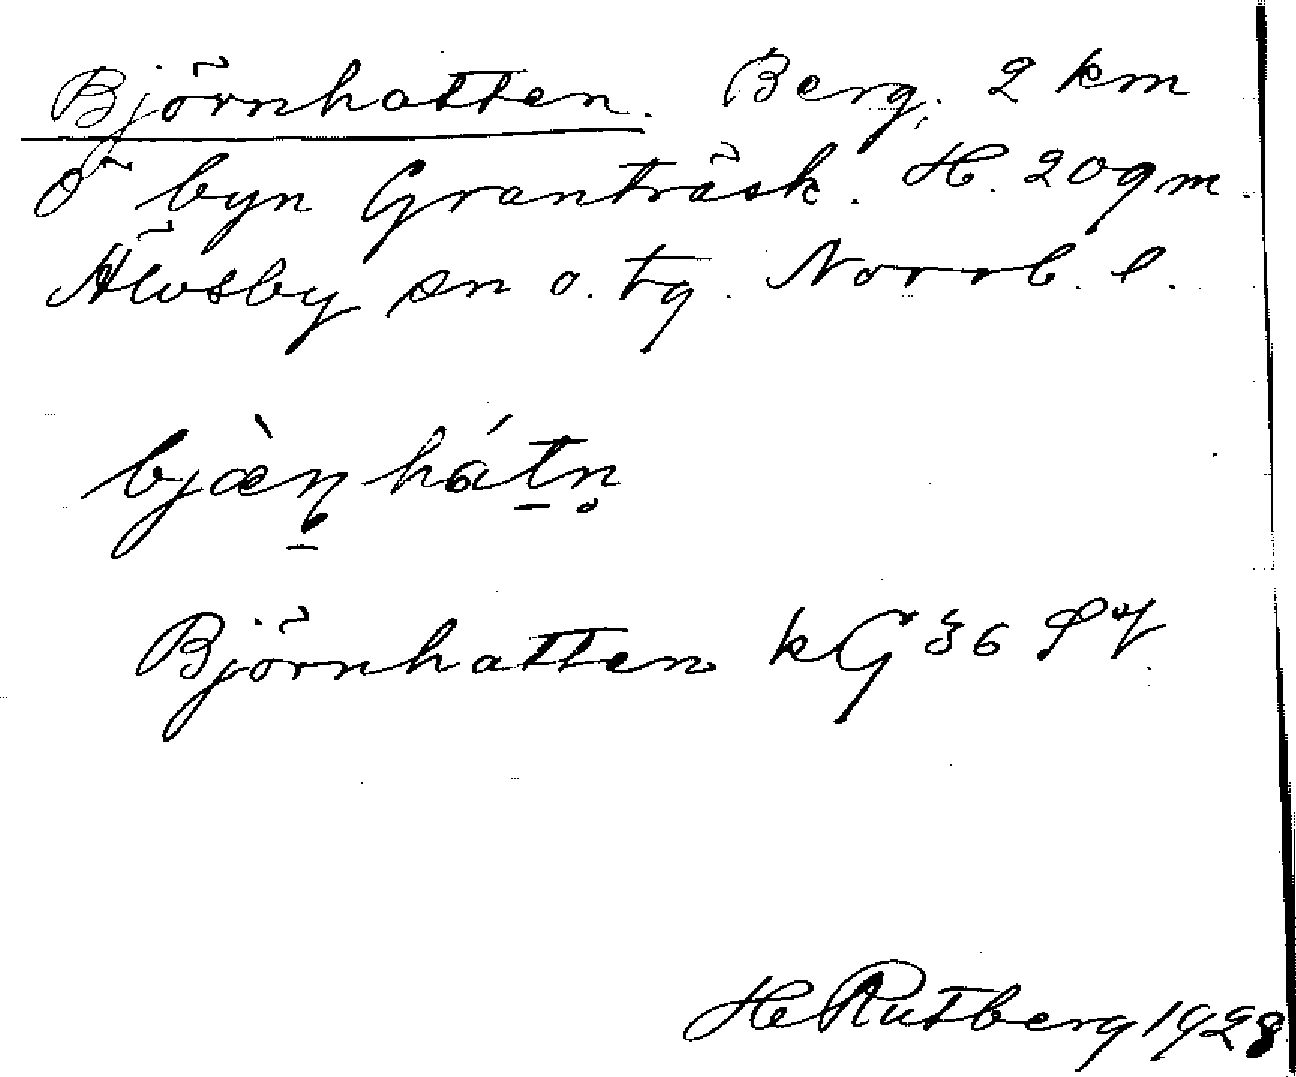 Björnhatten. Berg, 2 km
Ö byn Granträsk. H. 209 m.
Älvsby sn o. tg. Norrb. l.
bjæ̀n̠ hát̠n̥
Björnhatten kG 36
H Rutberg 1928